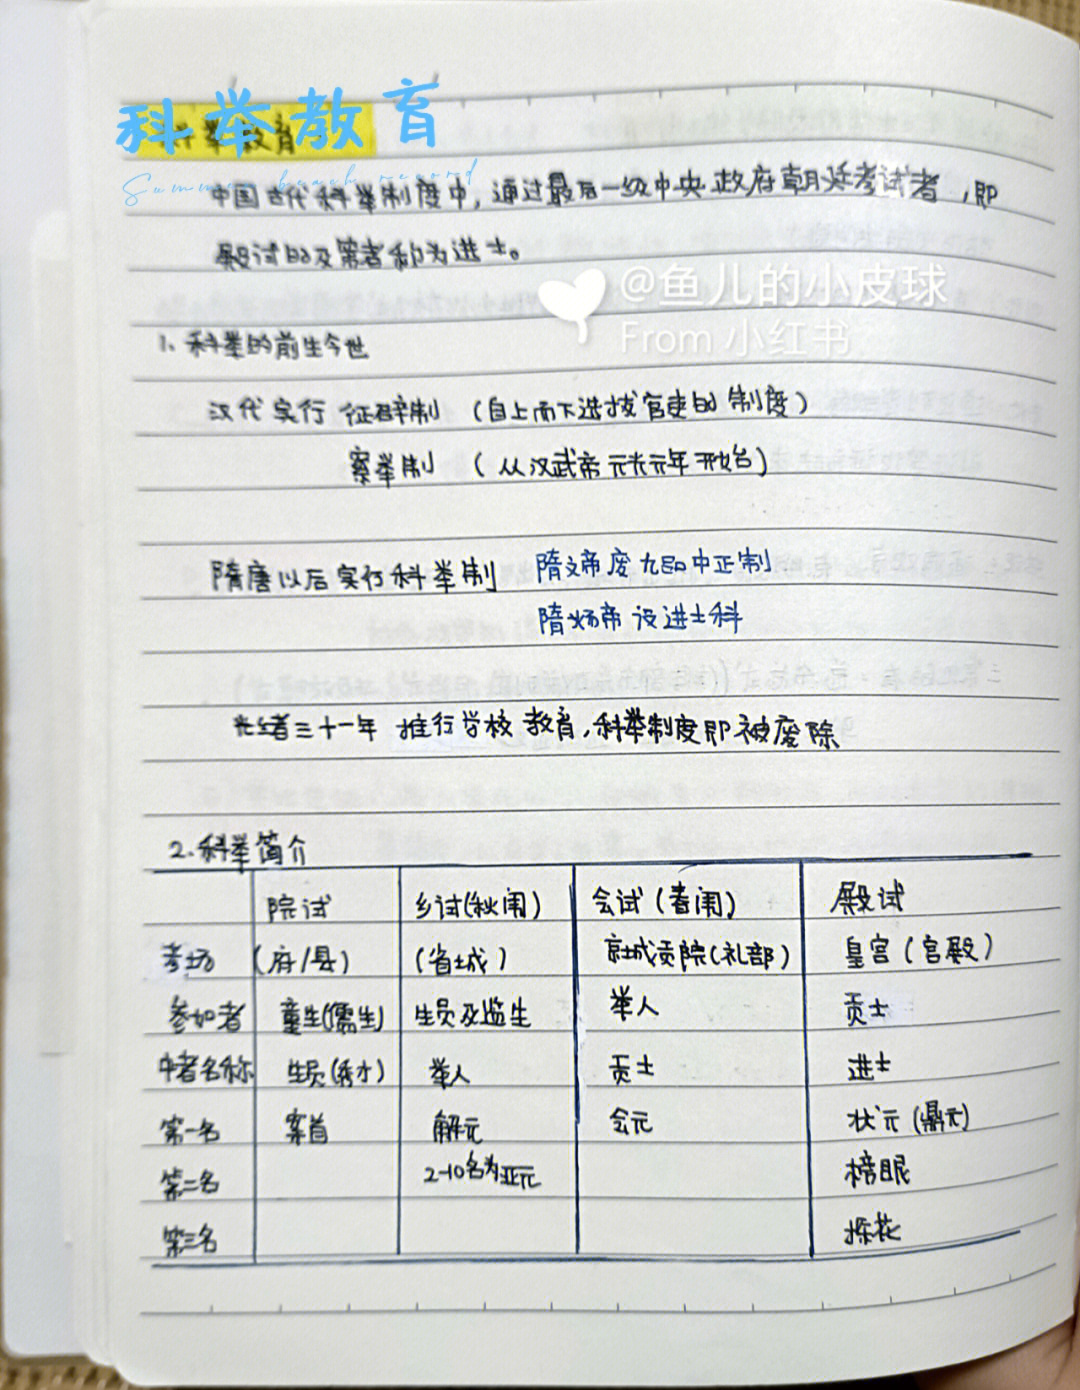 科举教育
科举教育
Summer beach record
中国古代科举制度中，通过最后一级中央政府朝廷考试者，即
殿试的及第者称为进士。
@鱼儿的小皮球
From 小红书
1、科举的前生今世
汉代实行 征辟制 （自上而下选拔官吏的制度）
察举制 （从汉武帝元光元年开始）
隋唐以后实行科举制 隋文帝废九品中正制
隋炀帝设进士科
光绪三十一年 推行学校教育，科举制度即被废除
2.科举简介
院试 乡试(秋闱) 会试(春闱) 殿试
考场 (府/县) (省城) 京城贡院(礼部) 皇宫(宫殿)
参加者 童生(儒生) 生员及监生 举人 贡士
中者名称 生员(秀才) 举人 贡士 进士
第一名 案首 解元 会元 状元(鼎元)
第二名 2-10名为亚元 榜眼
第三名 探花